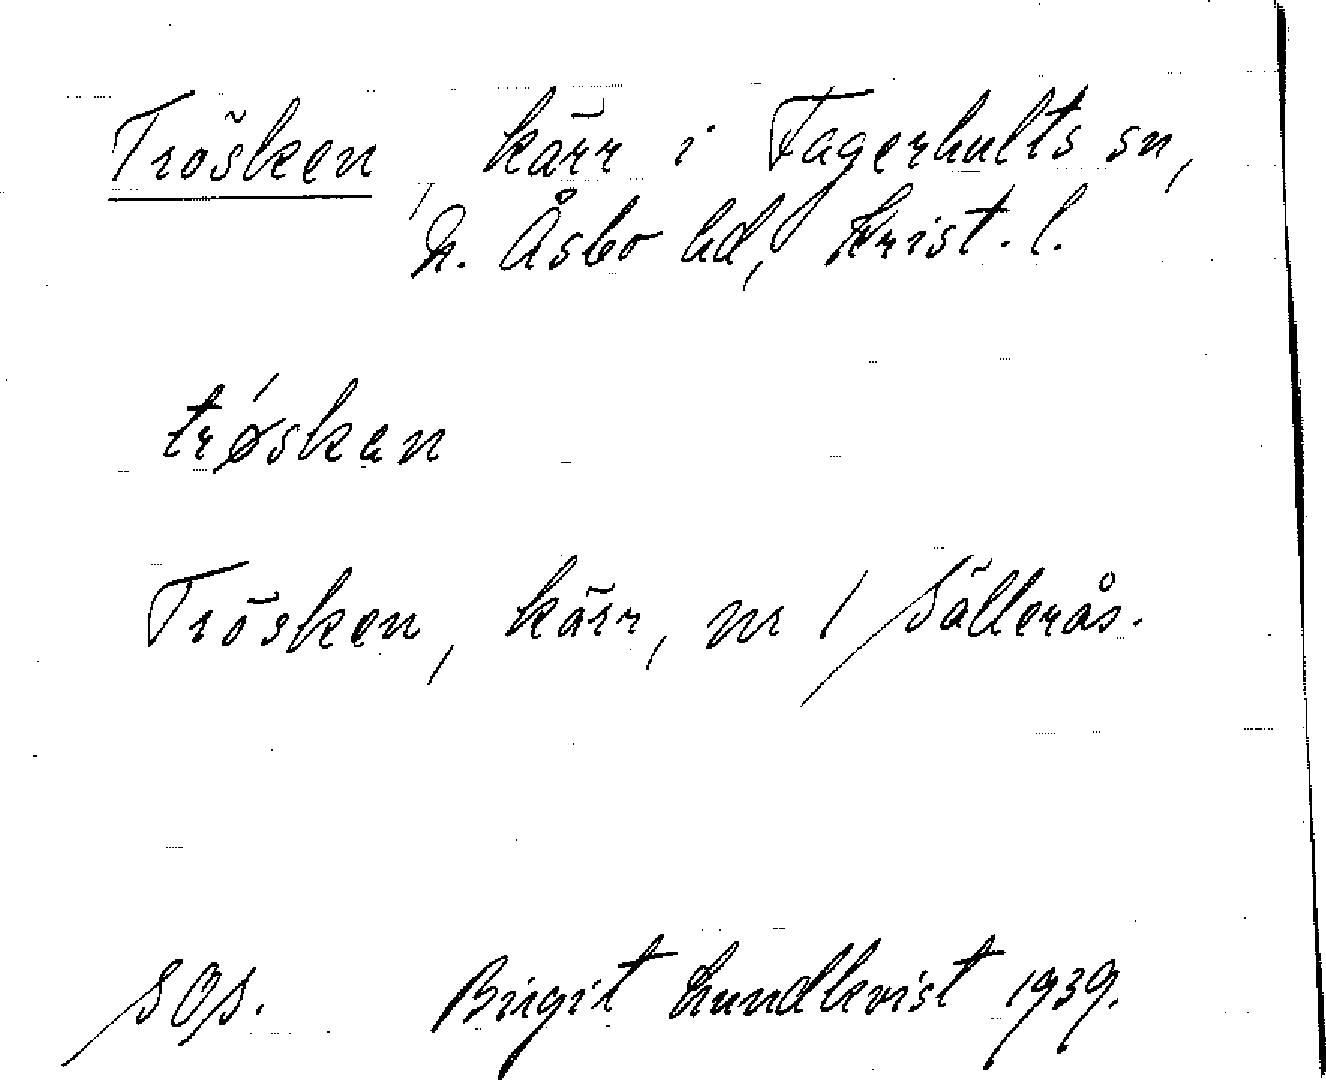 Trösken, kärr i Fagerhults sn,
N. Åsbo hd, Krist. l.
trǿskan
Trösken, kärr, nr 1 Sällerås.
SOS. Birgit Lundkvist 1939.